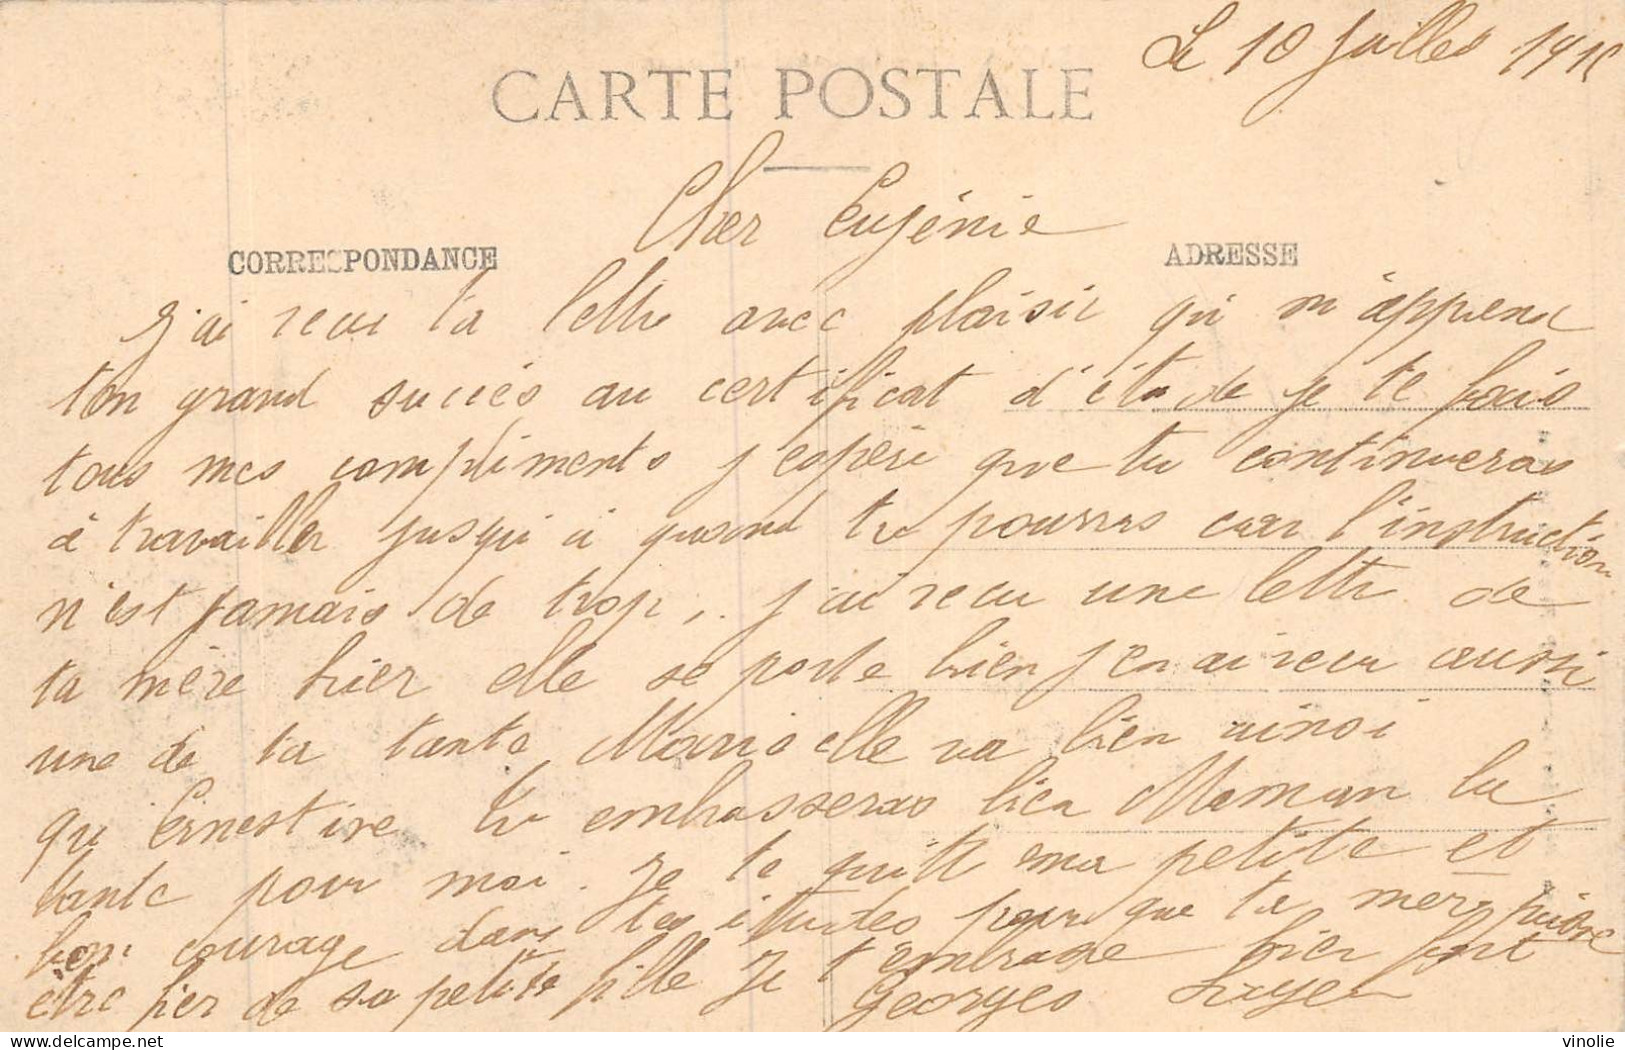 Le 10 Juillet 191
CARTE POSTALE
Cher Eugénie
CORRESPONDANCE
ADRESSE
J'ai recu ta lettre avec plaisir qui m'apprend
ton grand succés au certificat d'étude je te fais
tous mes compliments j'espère que tu continueras
à travailler jusqu'à quand tu pourras car l'instruction
n'est jamais de trop, j'ai recu une lettre de
ta mère hier elle se porte bien j'en ai recu aussi
une de ta tante Marie elle va bien ainsi
qu'Ernestine tu embrasseras bien Maman ta
tante pour moi. Je te quitte ma petite et
bon courage dans tes études pour que ta mère puisse
être fier de sa petite fille Je t'embrasse bien fort
Georges
vinolie